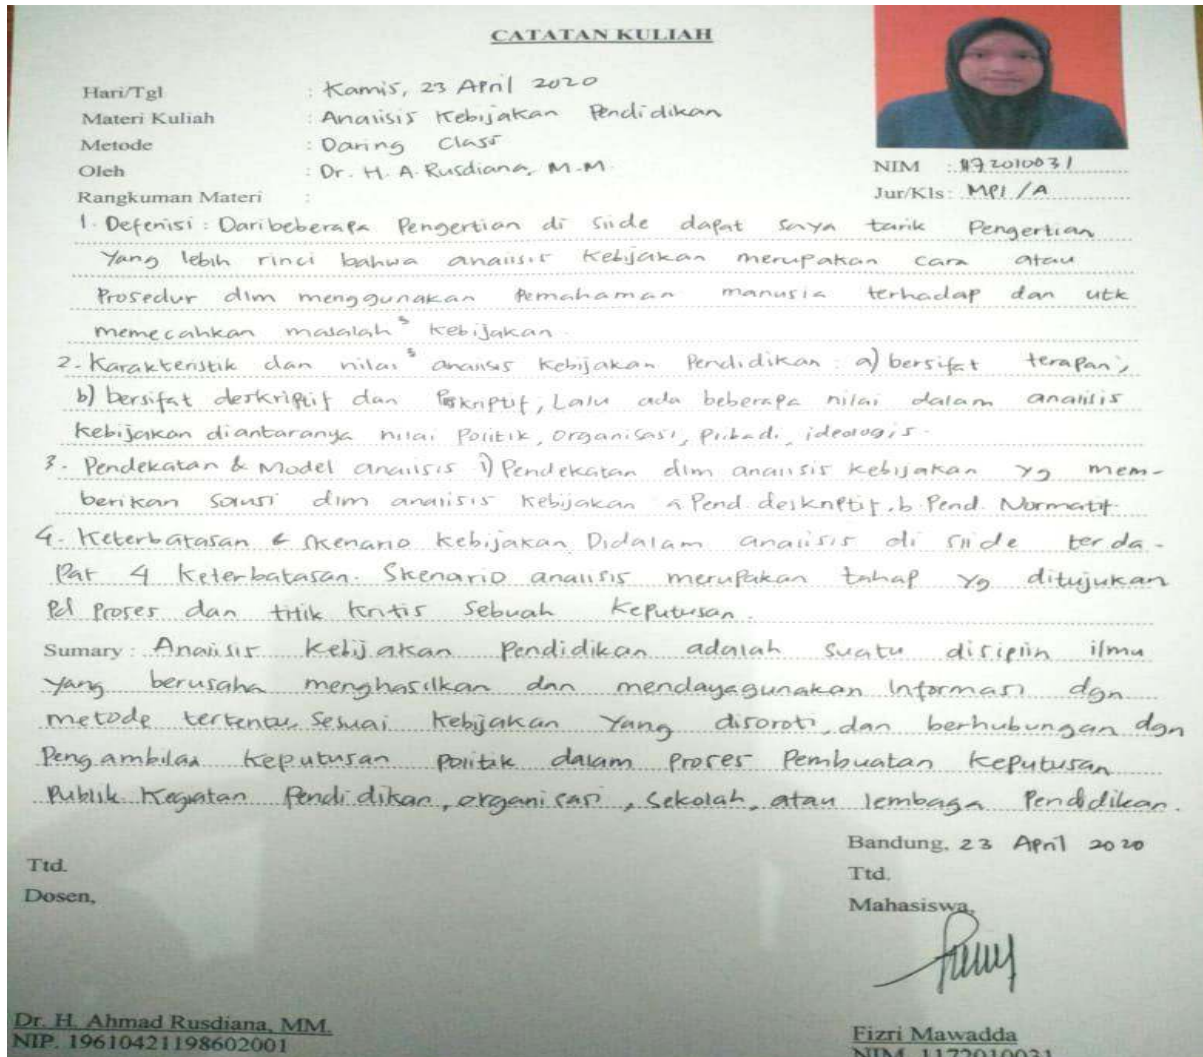 CATATAN KULIAH
Hari/Tgl : Kamis, 23 April 2020
Materi Kuliah : Analisis Kebijakan Pendidikan
Metode : Daring Class
Oleh : Dr. H. A. Rusdiana, M.M.
NIM : 1172010031
Rangkuman Materi :
Jur/Kls : MPI / A
1. Defenisi : Daribeberapa Pengertian di slide dapat saya tarik Pengertian
Yang lebih rinci bahwa analisis Kebijakan merupakan cara atau
Prosedur dlm menggunakan Pemahaman manusia terhadap dan utk
memecahkan masalah² Kebijakan.
2. Karakteristik dan nilai² analisis Kebijakan Pendidikan : a) bersifat terapan;
b) bersifat deskriptif dan Perskriptif; Lalu ada beberapa nilai dalam analisis
Kebijakan diantaranya nilai Politik, Organisasi, Pribadi, ideologis.
3. Pendekatan & Model analisis 1) Pendekatan dlm analisis kebijakan yg mem-
berikan solusi dlm analisis Kebijakan a. Pend. deskriptif. b. Pend. Normatif
4. Keterbatasan & Skenario Kebijakan Didalam analisis di slide terda-
Pat 4 Keterbatasan. Skenario analisis merupakan tahap yg ditujukan
Pd Proses dan titik kritis Sebuah Keputusan.
Sumary : Analisis Kebijakan Pendidikan adalah suatu disiplin ilmu
yang berusaha menghasilkan dan mendayagunakan Informasi dgn
metode tertentu Sesuai Kebijakan Yang disoroti, dan berhubungan dgn
Pengambilan Keputusan Politik dalam Proses Pembuatan Keputusan
Publik Kegiatan Pendidikan, organisasi, Sekolah, atau lembaga Pendidikan.
Bandung, 23 April 2020
Ttd.
Ttd.
Dosen,
Mahasiswa,
Dr. H. Ahmad Rusdiana, MM.
NIP. 19610421198602001
Fizri Mawadda
NIM. 1172010031